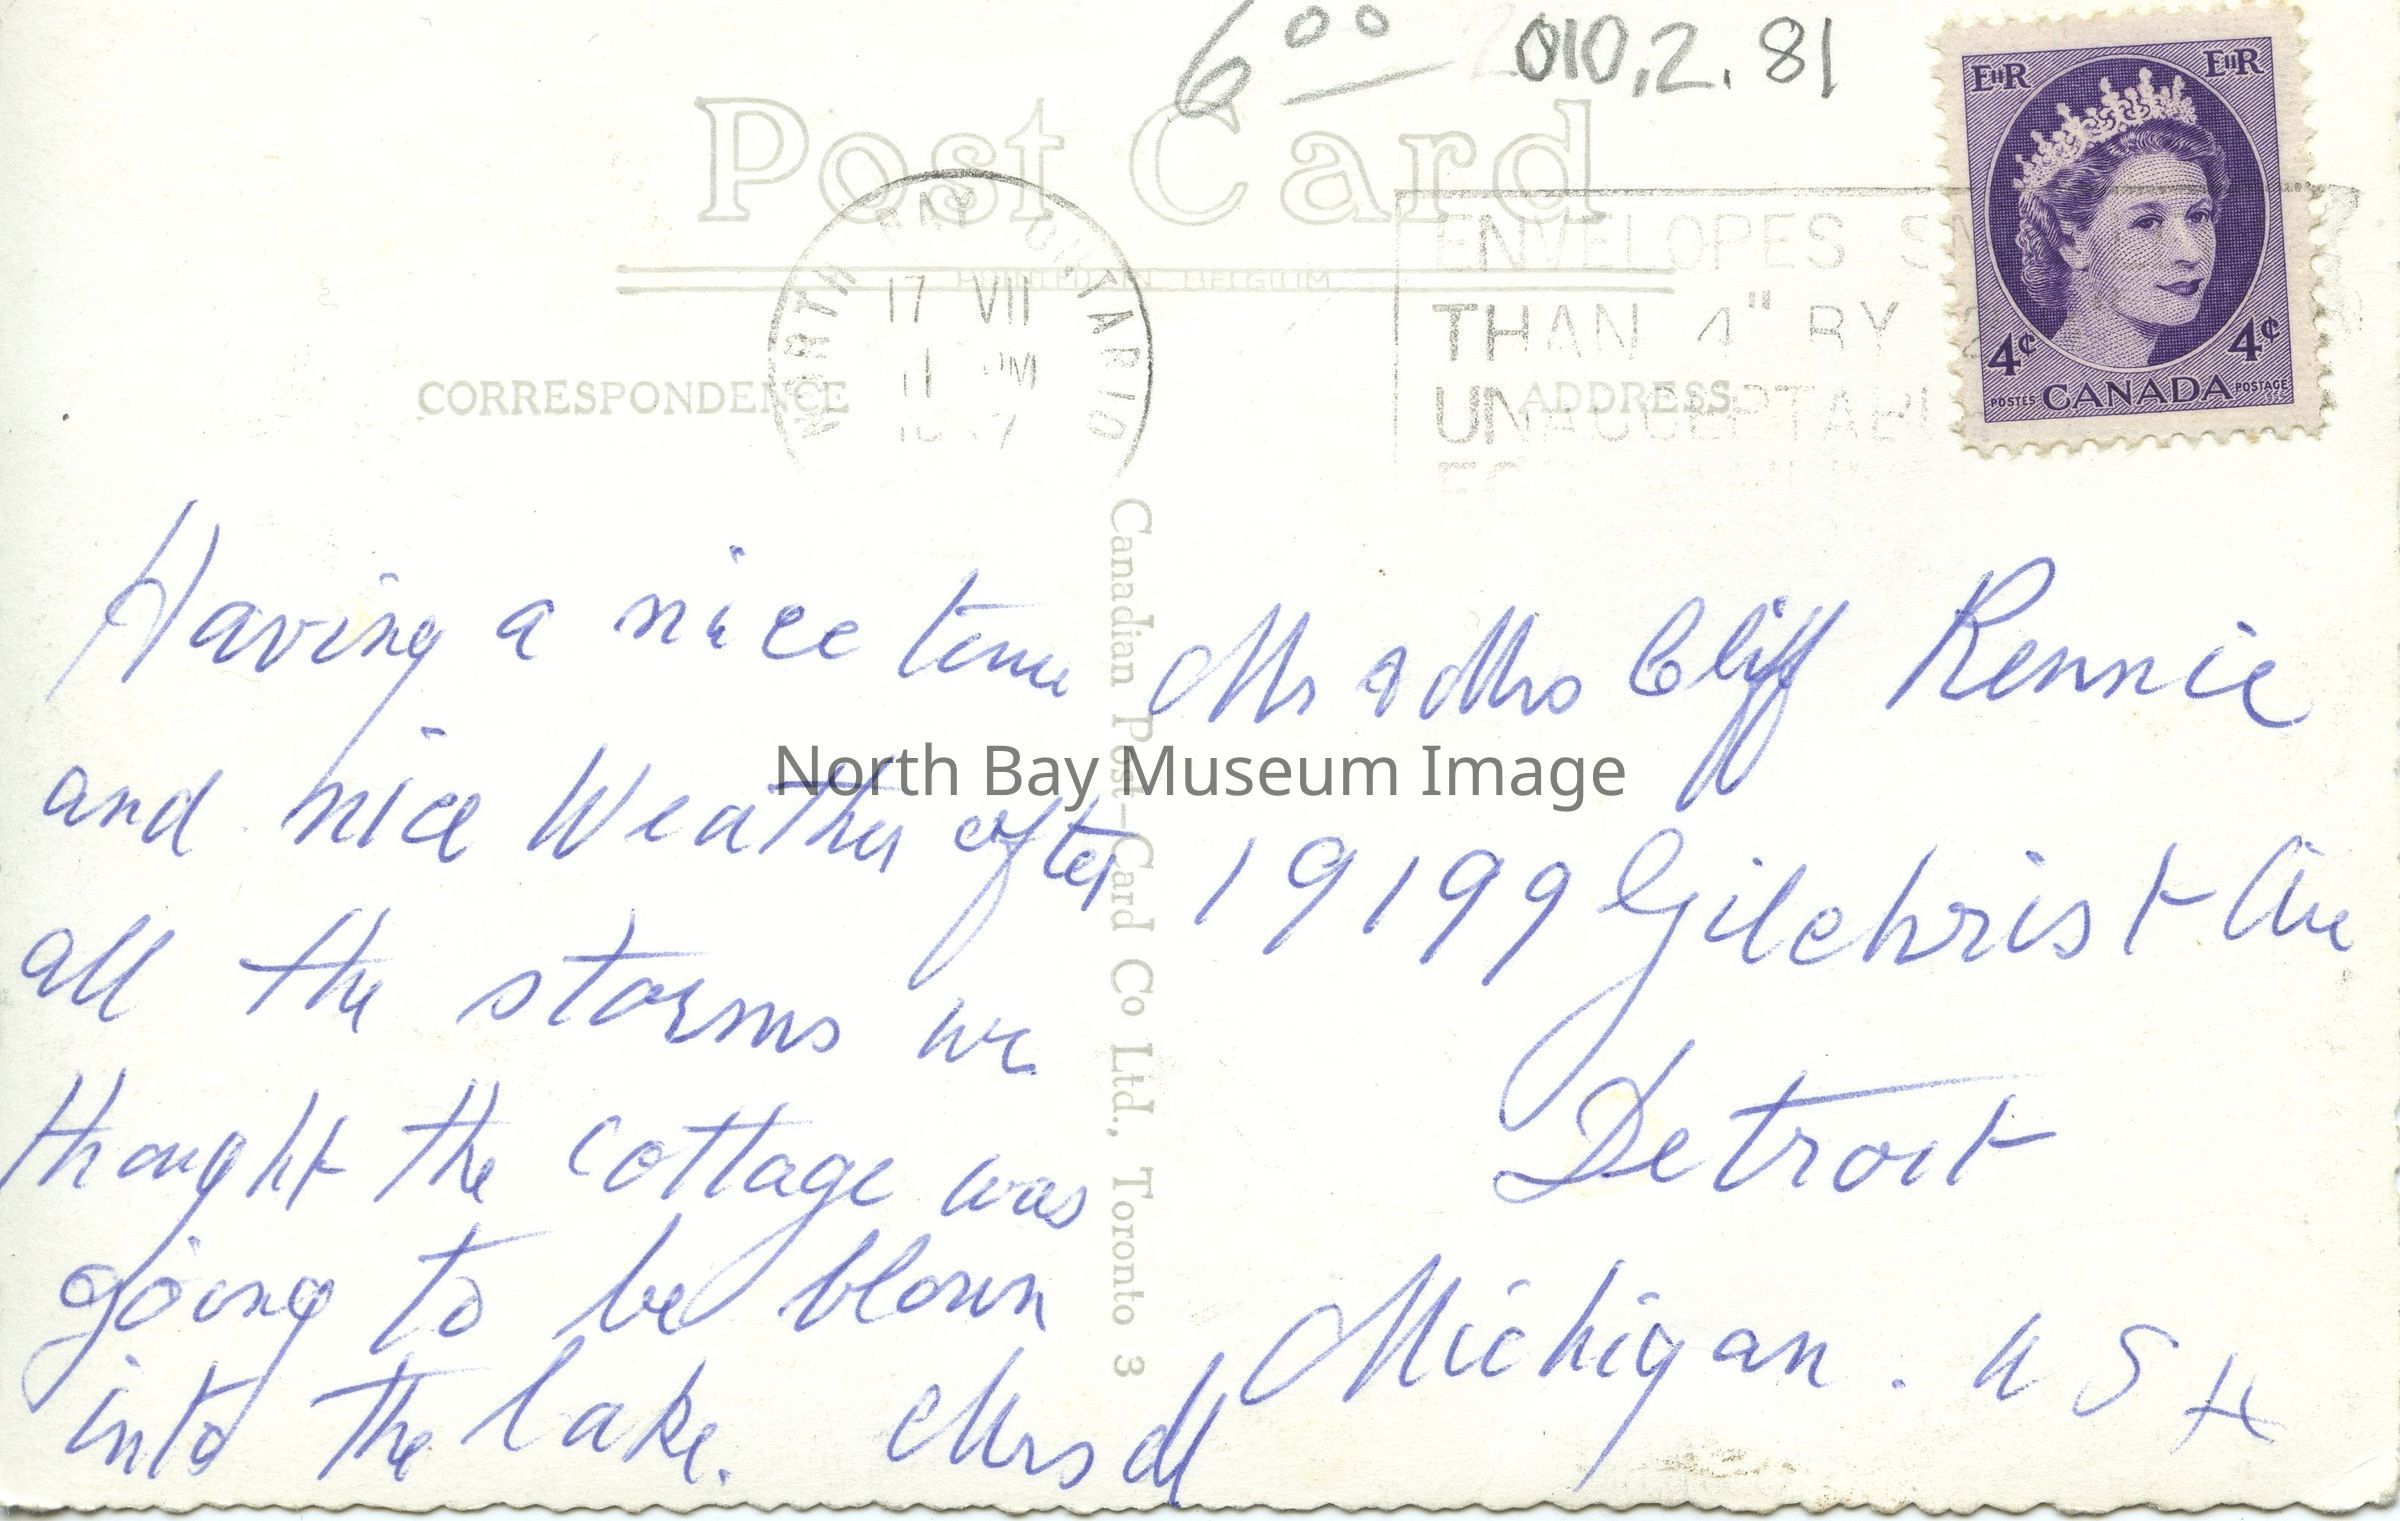 6 00 010.2.81
Post Card
EIIR EIIR
4¢ 4¢
POSTES CANADA POSTAGE
NORTH BAY ONTARIO
17 VII
11 PM
ENVELOPES
THAN 4" BY
UNACCEPTABL
BELGIUM
CORRESPONDENCE
ADDRESS
Having a nice time
and nice Weather after
all the storms we
thought the cottage was
going to be blown
into the lake. Mrs M
Canadian Post-Card Co Ltd., Toronto 3
Mr & Mrs Cliff Rennie
19199 Gilchrist Ave
Detroit
Michigan. U S A
North Bay Museum Image